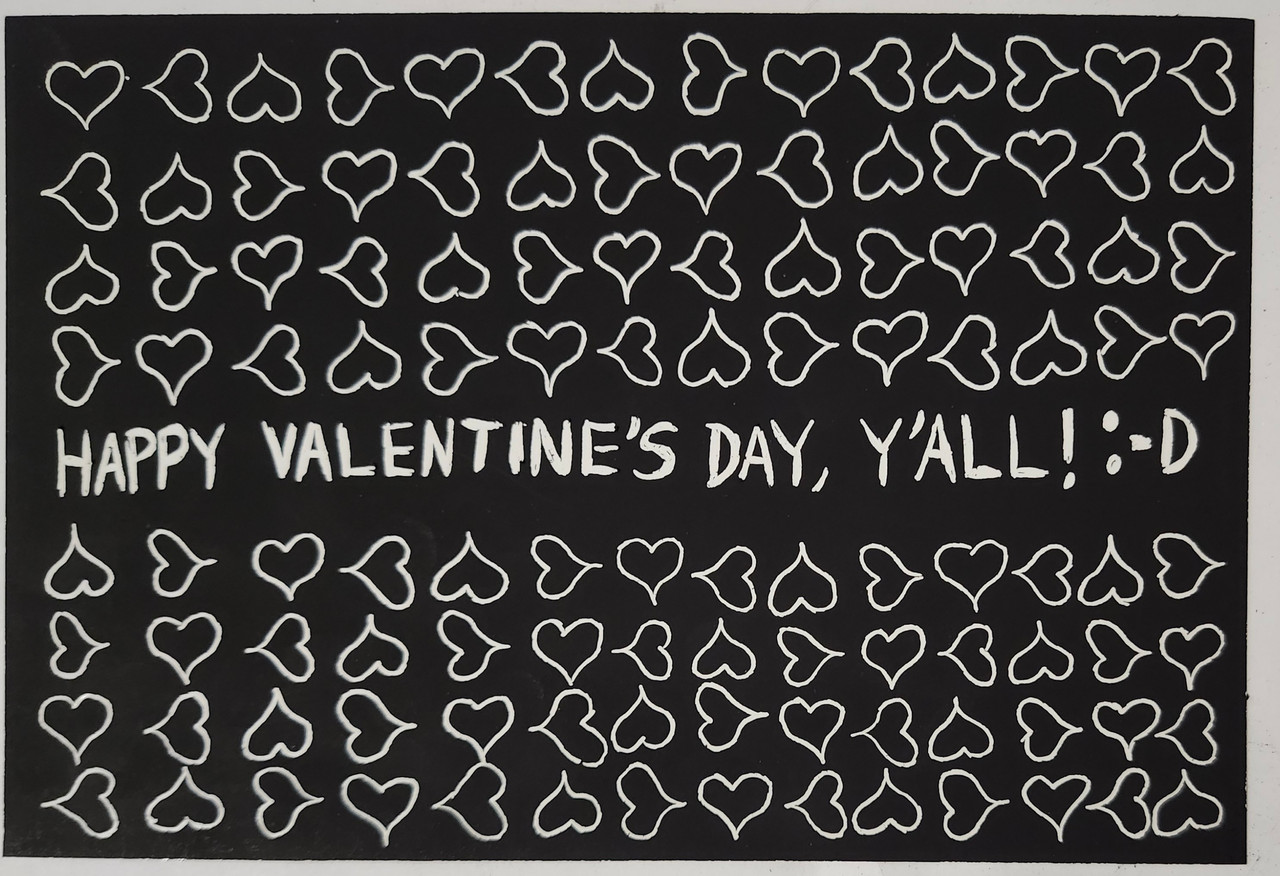 HAPPY VALENTINE'S DAY, Y'ALL! :-D